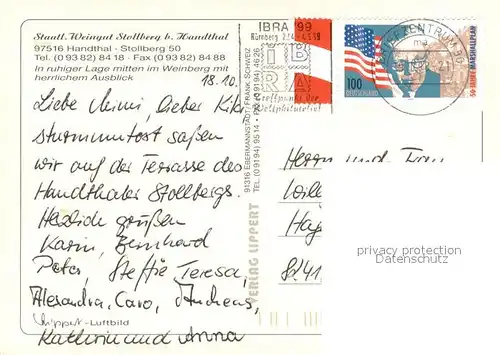 Staatl. Weingut Stollberg b. Handthal
97516 Handthal - Stollberg 50
Tel. (0 93 82) 84 18 - Fax (0 93 82) 84 88
In ruhiger Lage mitten im Weinberg mit
herrlichem Ausblick
18.10.
Liebe Mimi, lieber Kiki
sturmumtost saßen
wir auf der Terrasse des
Handthaler Stollbergs.
Herzlich grüßen
Karin, Bernhard
Peter, Steffie Teresa,
Alexandra, Caro, Andreas,
Kathrin und Anna
Lippert-Luftbild
VERLAG LIPPERT
91316 EBERMANNSTADT/FRÄNK. SCHWEIZ
TEL. (0 91 94) 95 14 - FAX (0 91 94) 46 26
IBRA '99
Nürnberg
IB
RA
Treffpunkt der
Weltphilatelie!
BRIEFZENTRUM 90
100
DEUTSCHLAND
50 JAHRE MARSHALLPLAN
Herrn und Frau
privacy protection
www.akpool.de